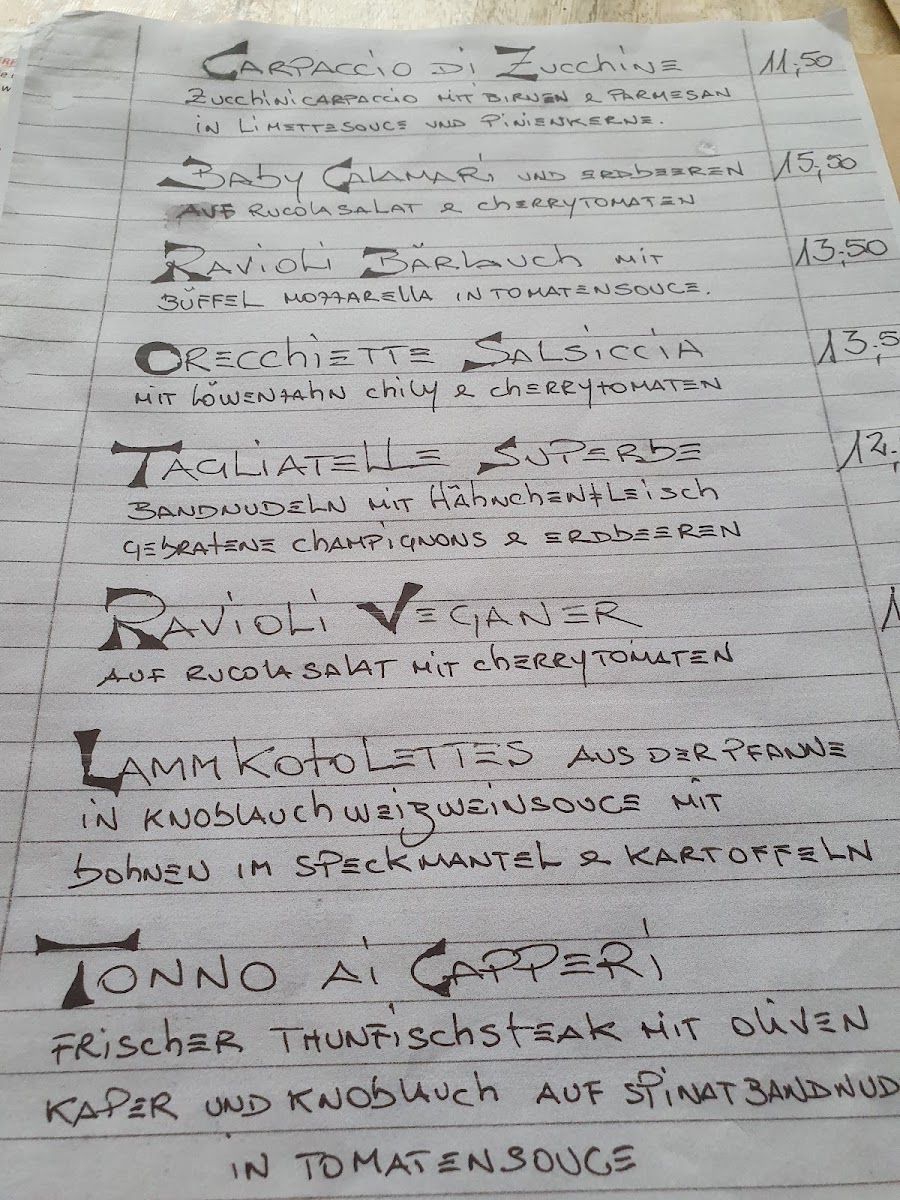 Carpaccio di Zucchine 11,50
Zucchinicarpaccio mit Birnen & Parmesan
in Limettesouce und Pinienkerne.
Baby Calamari und Erdbeeren 15,50
auf Rucolasalat & Cherrytomaten
Ravioli Bärlauch mit 13,50
Büffel Mozzarella in Tomatensouce.
Orecchiette Salsiccia 13,5
mit Löwenzahn Chily & Cherrytomaten
Tagliatelle Superbe 12,
Bandnudeln mit Hähnchenfleisch
gebratene Champignons & Erdbeeren
Ravioli Veganer 1
auf Rucolasalat mit Cherrytomaten
Lammkotolettes aus der Pfanne
in Knoblauchweißweinsouce mit
Bohnen im Speckmantel & Kartoffeln
Tonno ai Capperi
Frischer Thunfischsteak mit Oliven
Kaper und Knoblauch auf Spinatbandnud
in Tomatensouce